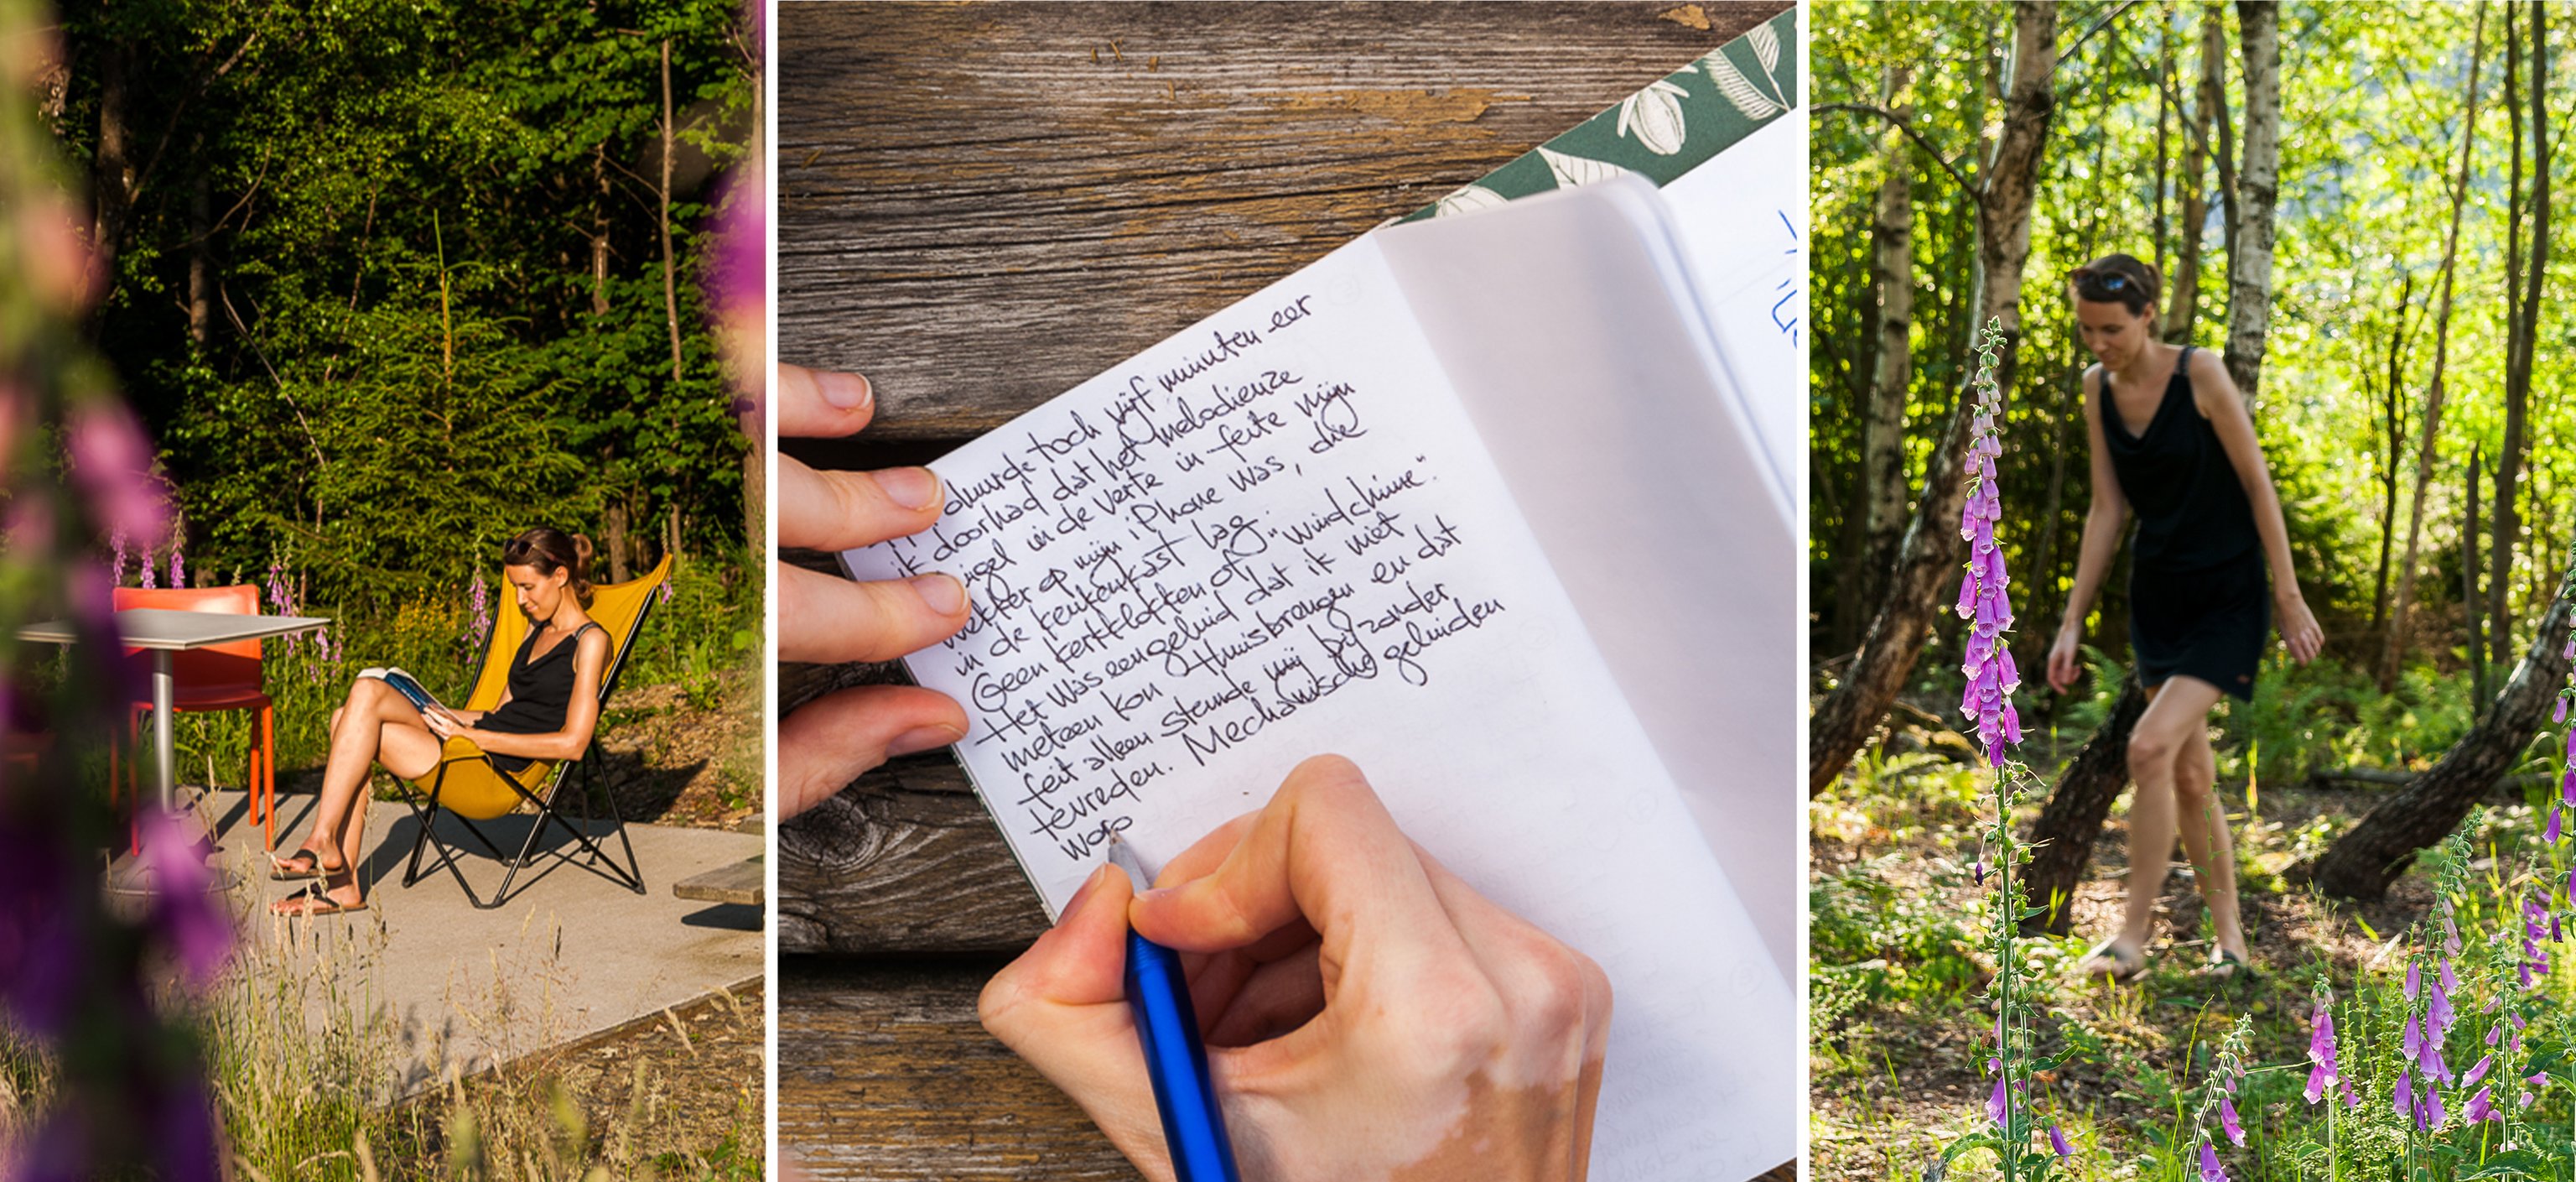 duurde toch vijf minuten eer
ik doorhad dat het melodieuze
in de verte in feite mijn
wekker op mijn iPhone was, die
in de keukenkast lag. "windchime".
Geen kerkklokken of
Het was een geluid dat ik niet
meteen kon thuisbrengen en dat
feit alleen stemde mij bijzonder
tevreden. Mechanische geluiden
wor